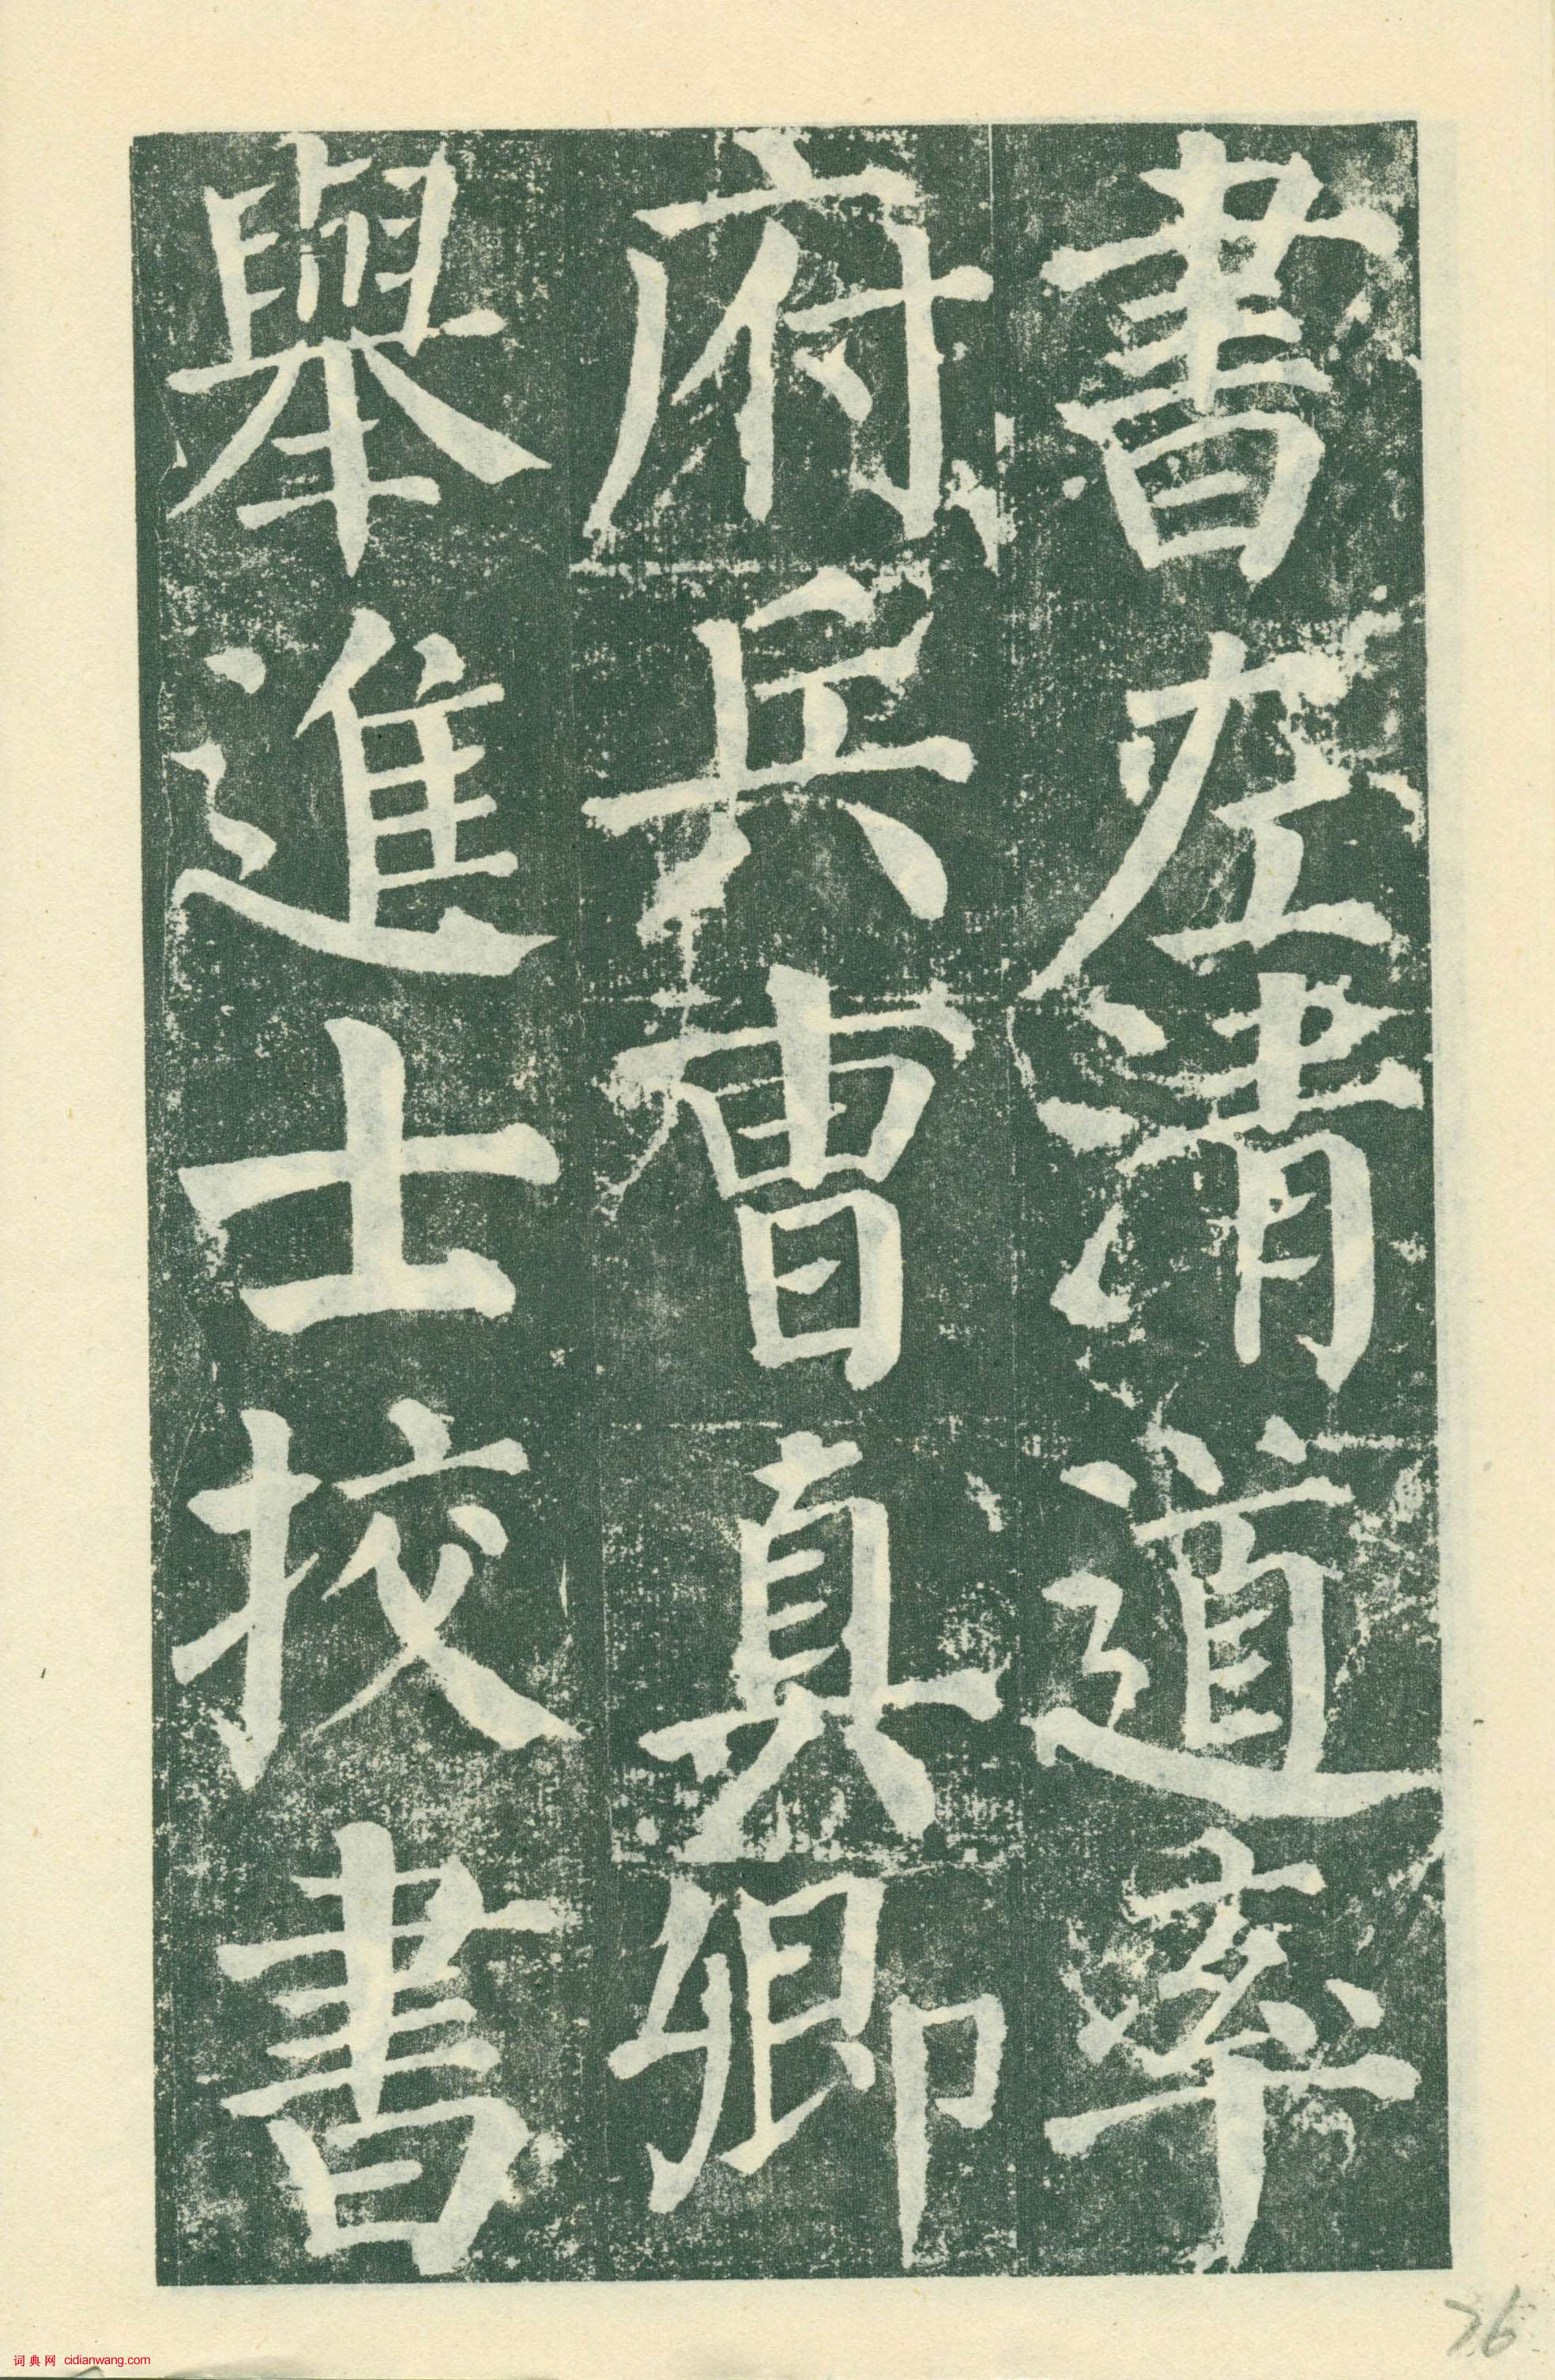 書左清道率
府兵曹真卿
舉進士挍書
76
词典网 cidianwang.com